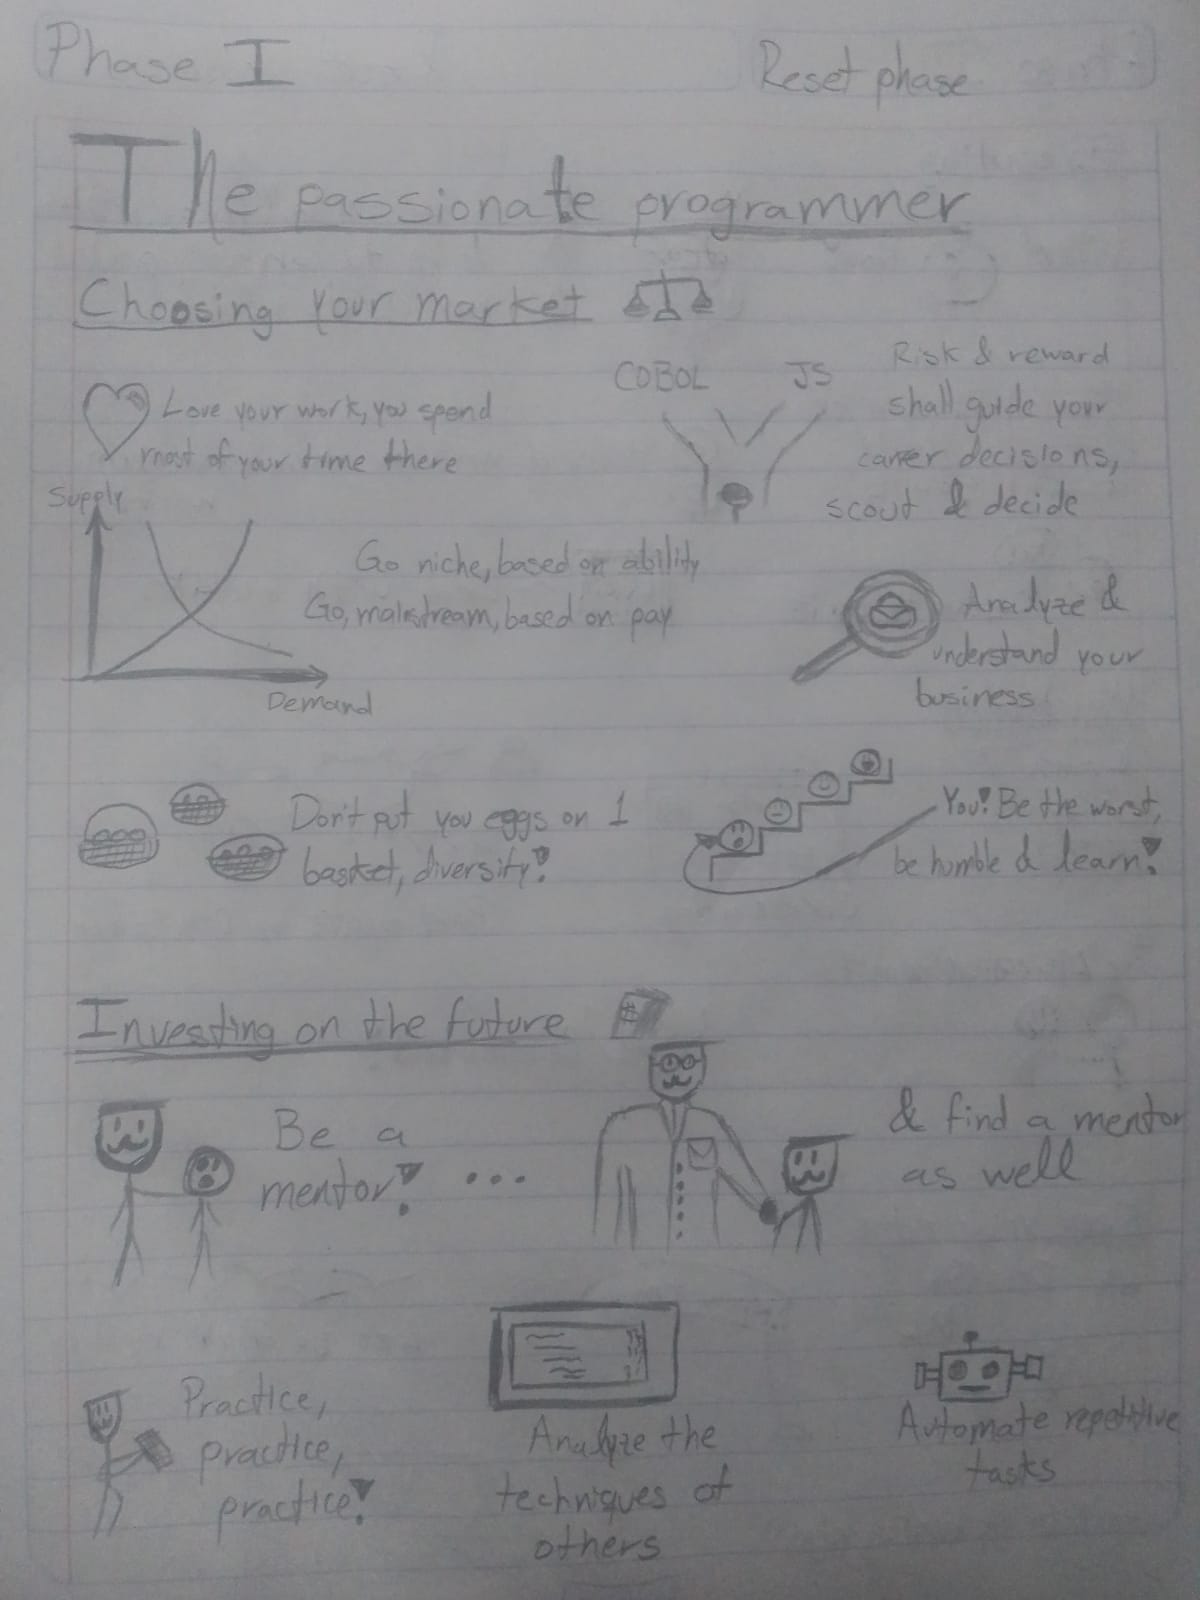 Phase I
Reset phase
The passionate programmer
Choosing your market
Love your work, you spend
most of your time there
COBOL JS
Risk & reward
shall guide your
career decisions,
scout & decide
Supply
Demand
Go niche, based on ability
Go, mainstream, based on pay
Analyze &
understand your
business
Don't put you eggs on 1
basket, diversity!
You! Be the worst,
be humble & learn!
Investing on the future
Be a
mentor! ...
& find a mentor
as well
Practice,
practice,
practice!
Analyze the
techniques of
others
Automate repetitive
tasks